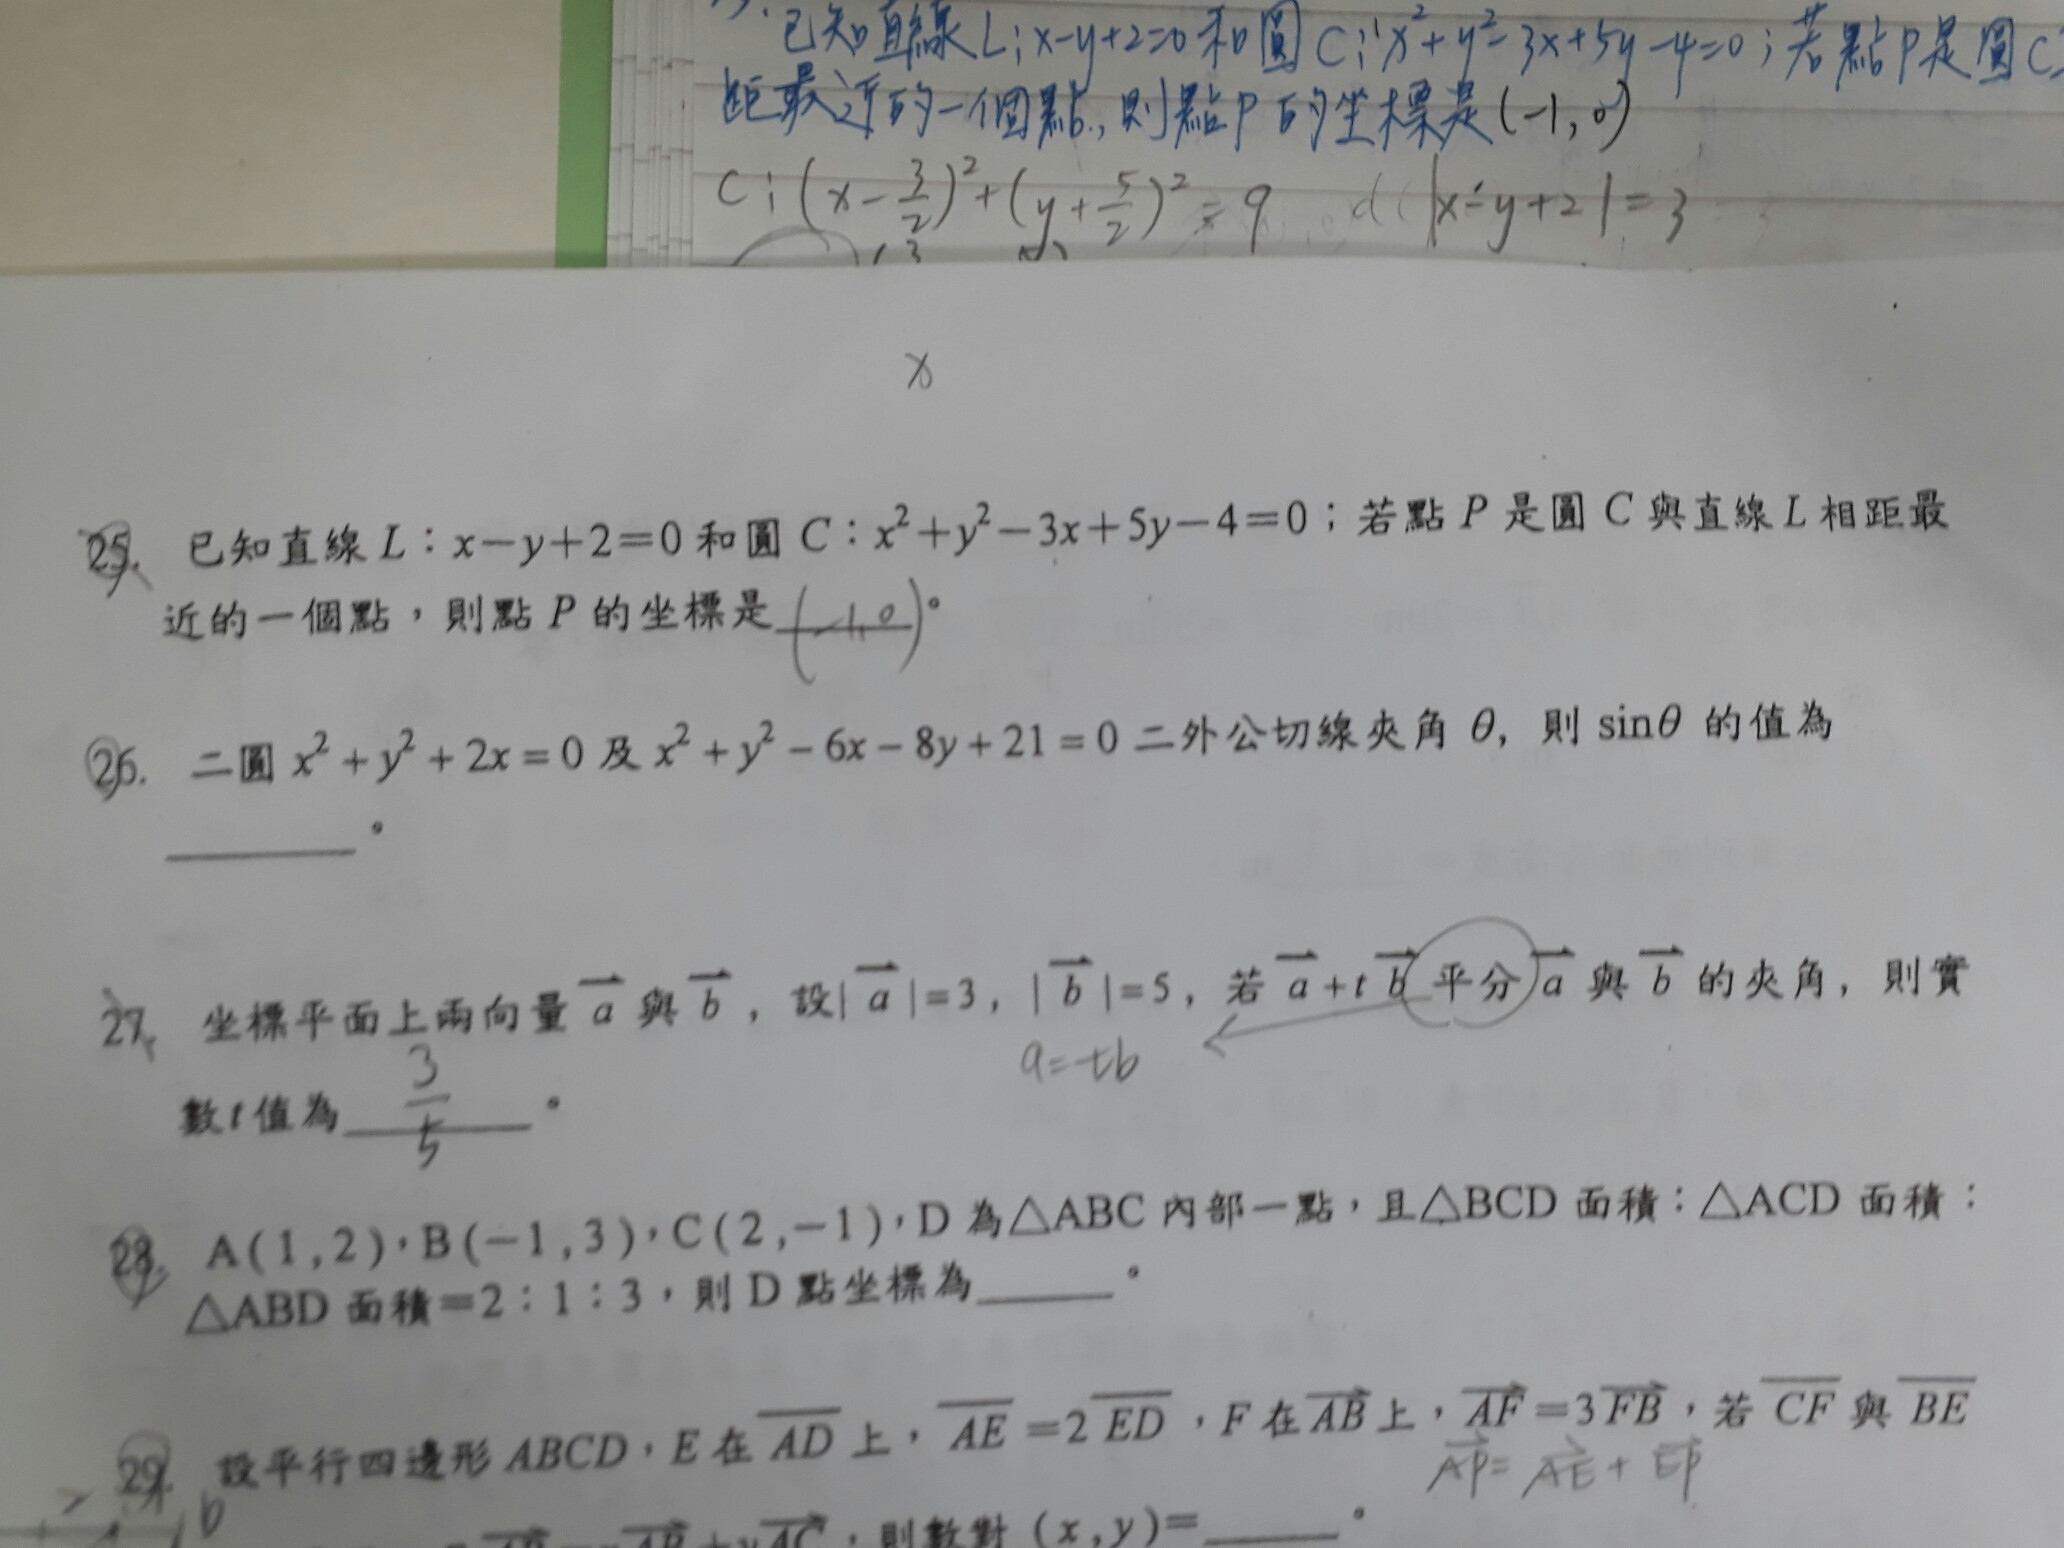 已知直線L:x-y+2=0和圓C:x²+y²-3x+5y-4=0;若點P是圓C
距最近的一個點,則點P的坐標是(-1,0)
C:(x-3/2)²+(y+5/2)²=9 d |x-y+2|=3
x
25. 已知直線 L:x-y+2=0 和圓 C:x²+y²-3x+5y-4=0;若點 P 是圓 C 與直線 L 相距最
近的一個點,則點 P 的坐標是(-1,0)。
26. 二圓 x²+y²+2x=0 及 x²+y²-6x-8y+21=0 二外公切線夾角 θ, 則 sinθ 的值為
______。
27. 坐標平面上兩向量 a 與 b ,設| a |=3, | b |=5, 若 a + t b 平分 a 與 b 的夾角, 則實
a=tb
數 t 值為 3/5 。
28. A(1,2),B(-1,3),C(2,-1),D 為△ABC 內部一點,且△BCD 面積:△ACD 面積:
△ABD 面積=2:1:3,則 D 點坐標為______。
29. 設平行四邊形 ABCD,E 在 AD 上, AE =2 ED ,F 在 AB 上, AF =3 FB ,若 CF 與 BE
AP=AE+EP
b
AC ,則數對 (x,y)=______。